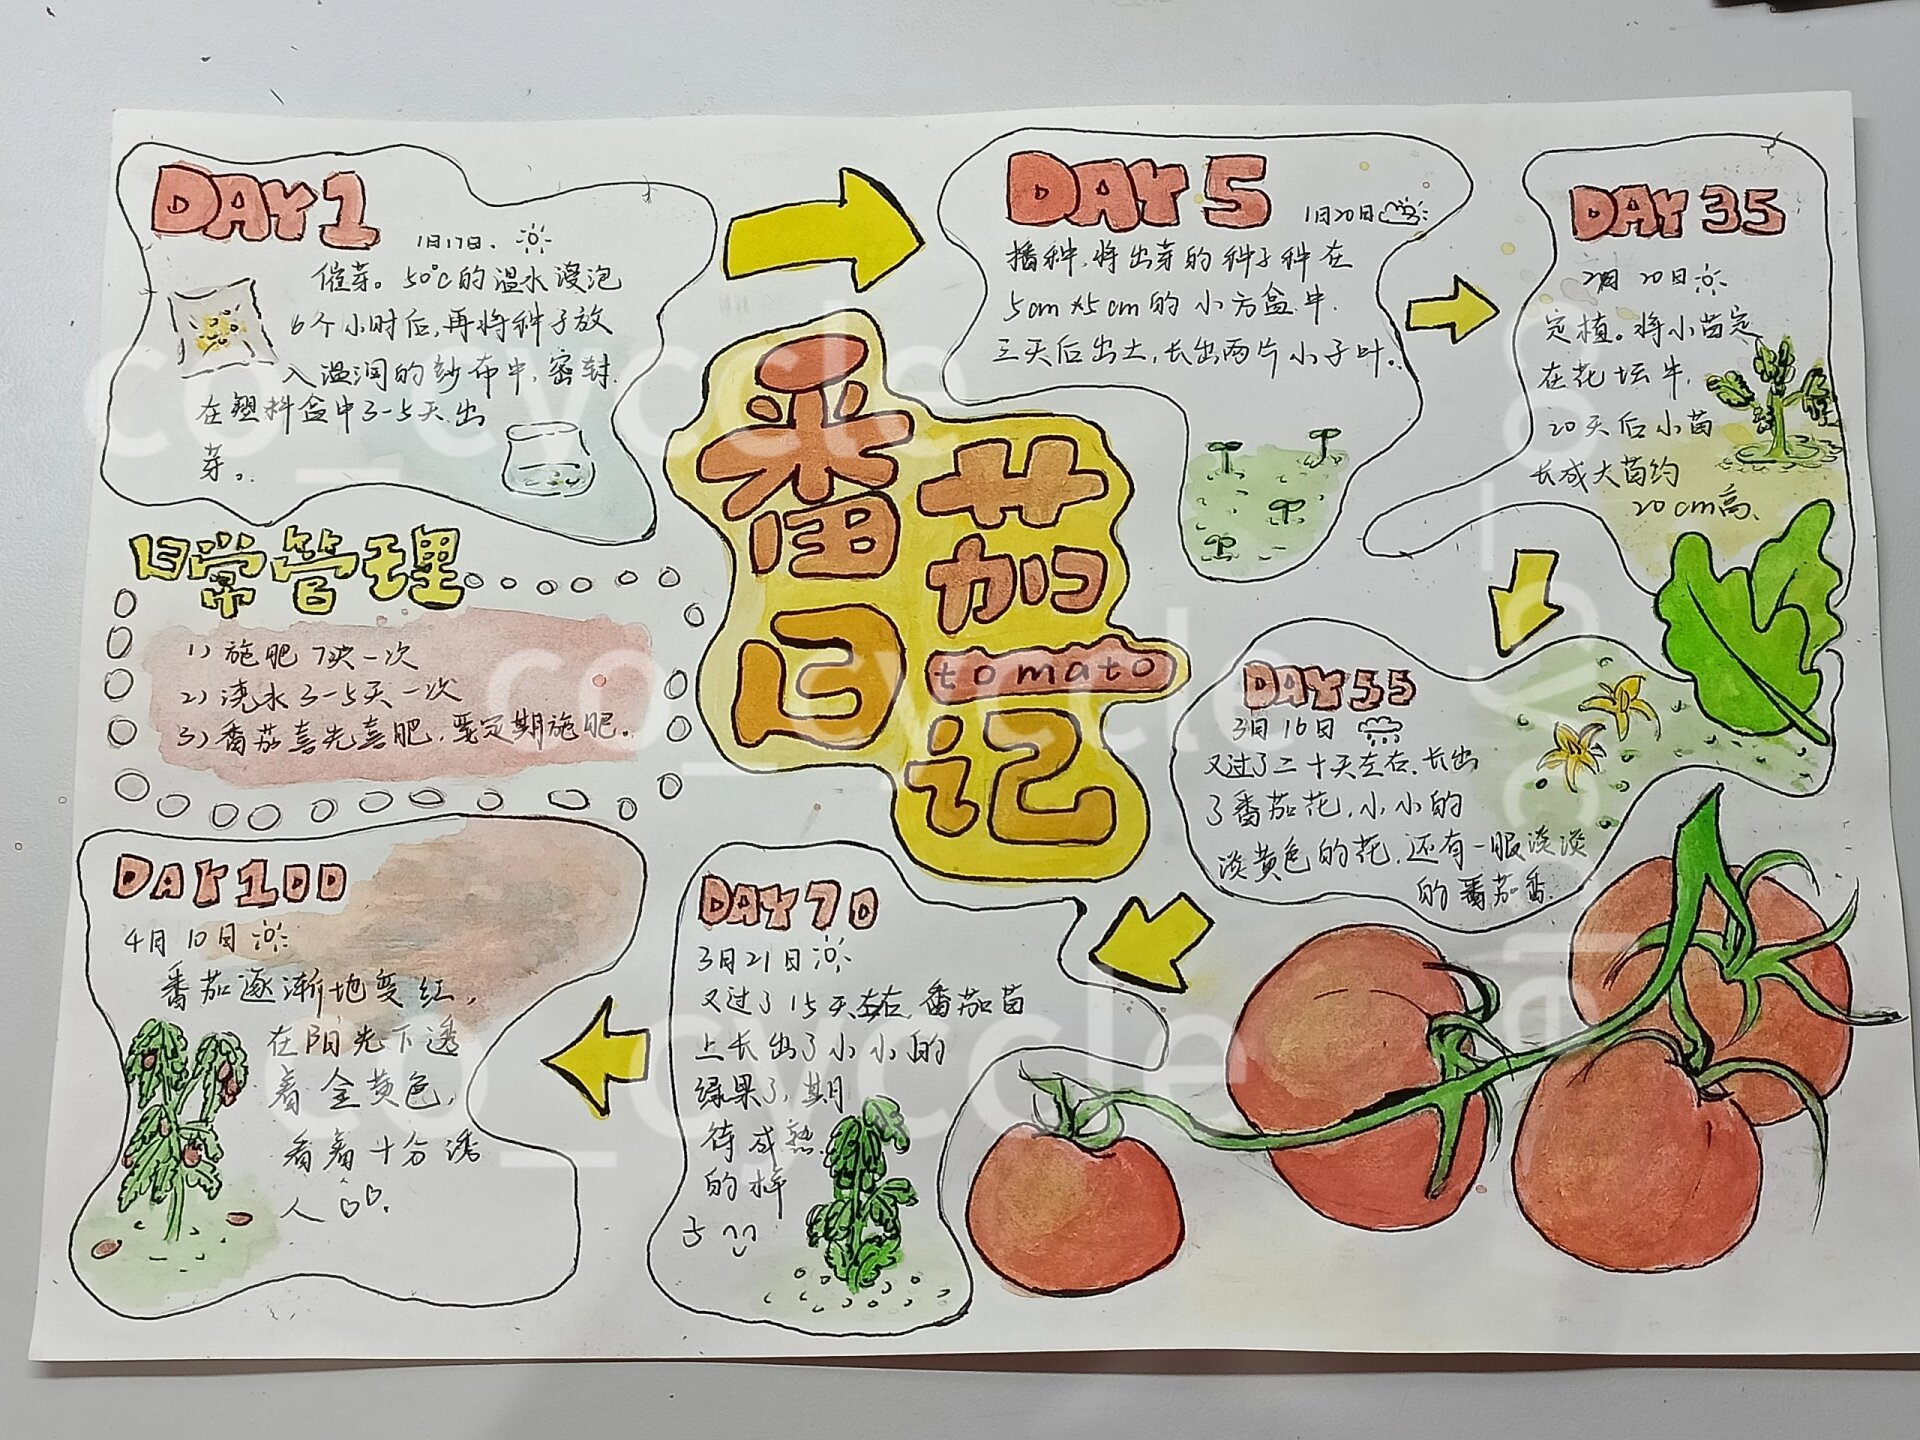 DAY 1
1月17日.
催芽。50℃的温水浸泡
6个小时后,再将种子放
入温润的纱布中,密封.
在塑料盒中3-5天出
芽。
DAY 5
1月20日
播种,将出芽的种子种在
5cm×5cm的小方盒中.
三天后出土,长出两片小子叶.
DAY 35
2月20日
定植。将小苗定
在花坛中,
20天后小苗
长成大苗约
20cm高.
番茄
日记
tomato
日常管理
1)施肥7天一次
2)浇水3-5天一次
3)番茄喜光喜肥,要定期施肥。
DAY 55
3月16日
又过了二十天左右,长出
了番茄花,小小的
淡黄色的花,还有一股淡淡
的番茄香.
DAY 70
3月21日
又过了15天左右,番茄苗
上长出了小小的
绿果了,期
待成熟
的样
子
DAY 100
4月10日
番茄逐渐地变红,
在阳光下透
着金黄色,
看着十分诱
人
co_cyccle
co_cyccle
co_cyccle